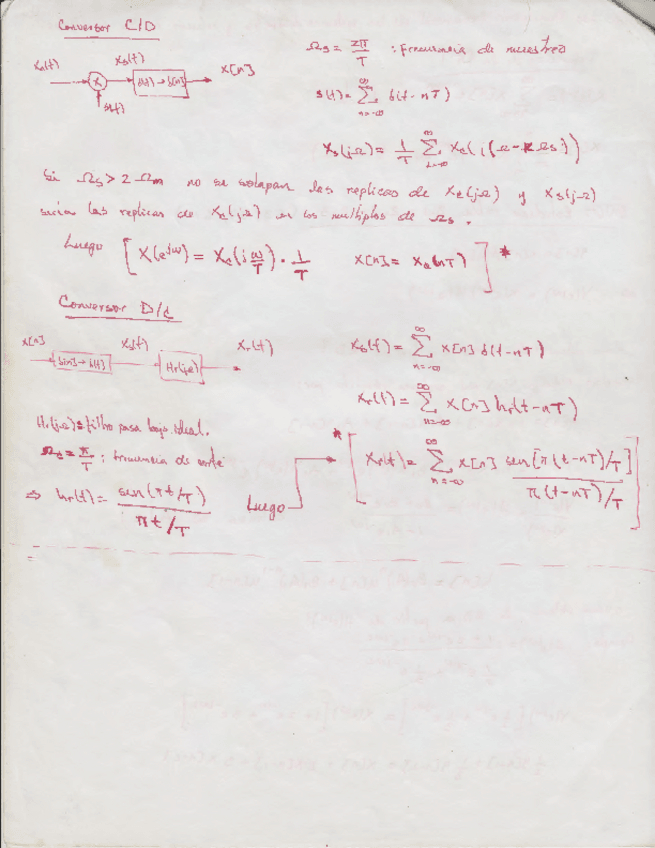 Conversor C/D
Xc(t) → x → Xs(t) → s(t) → δ[n] → X[n]
s(t)
Ωs = 2π/T : frecuencia de muestreo
s(t) = ∑_{n=-∞}^{∞} δ(t-nT)
Xs(jΩ) = 1/T ∑_{-∞}^{∞} Xc(j(Ω-kΩs))
Si Ωs > 2 Ωm no se solapan las replicas de Xc(jΩ) y Xs(jΩ)
serian las replicas de Xc(jΩ) en los multiplos de Ωs.
Luego [X(e^{jω}) = Xc(j ω/T) · 1/T X[n] = Xc(nT)] *
Conversor D/C
X[n] Xs(t) Xr(t)
δ[n] → δ(t) Hr(jΩ)
Xs(t) = ∑_{n=-∞}^{∞} X[n] δ(t-nT)
Xr(t) = ∑_{n=-∞}^{∞} X[n] hr(t-nT)
Hr(jΩ) = filtro pasa bajo ideal.
Ωc = π/T : frecuencia de corte
⇒ hr(t) = sen(πt/T) / πt/T
Luego → * [Xr(t) = ∑_{n=-∞}^{∞} X[n] sen[π(t-nT)/T] / π(t-nT)/T]